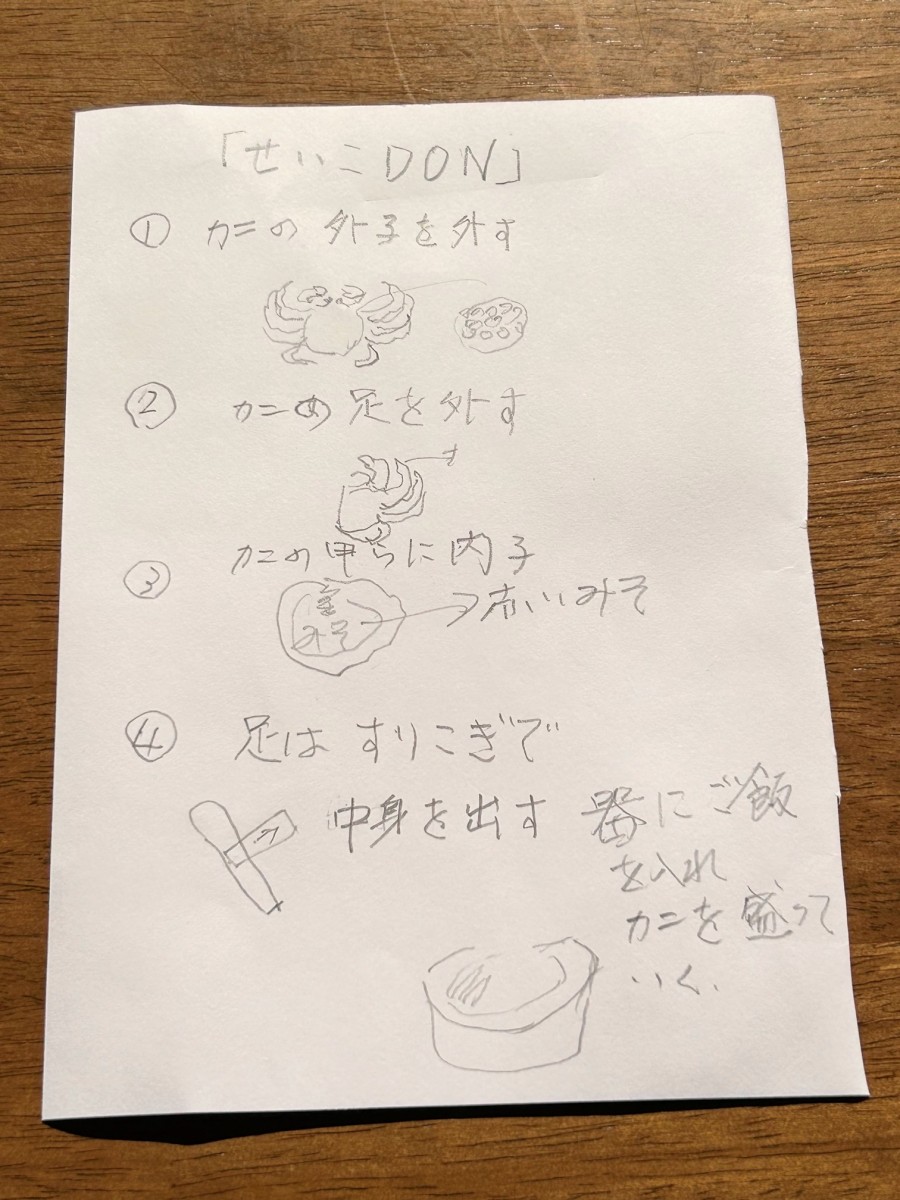 「せいこDON」
① カニの外子を外す
② カニの足を外す
③ カニの甲らに内子
みそ
→赤いみそ
④ 足はすりこぎで
中身を出す
器にご飯
を入れ
カニを盛って
いく.